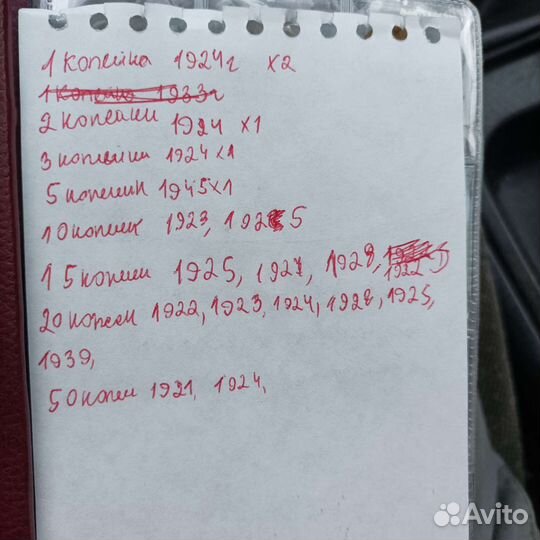 1 копейка 1924г x2
1 копейка 1933г
2 копейки 1924 x1
3 копейки 1924 x1
5 копеик 1945 x1
10 копеек 1923, 1925
15 копеик 1925, 1921, 1929, 1922
20 копеек 1922, 1923, 1924, 1928, 1925,
1939,
50 копеи 1921, 1924,
Avito